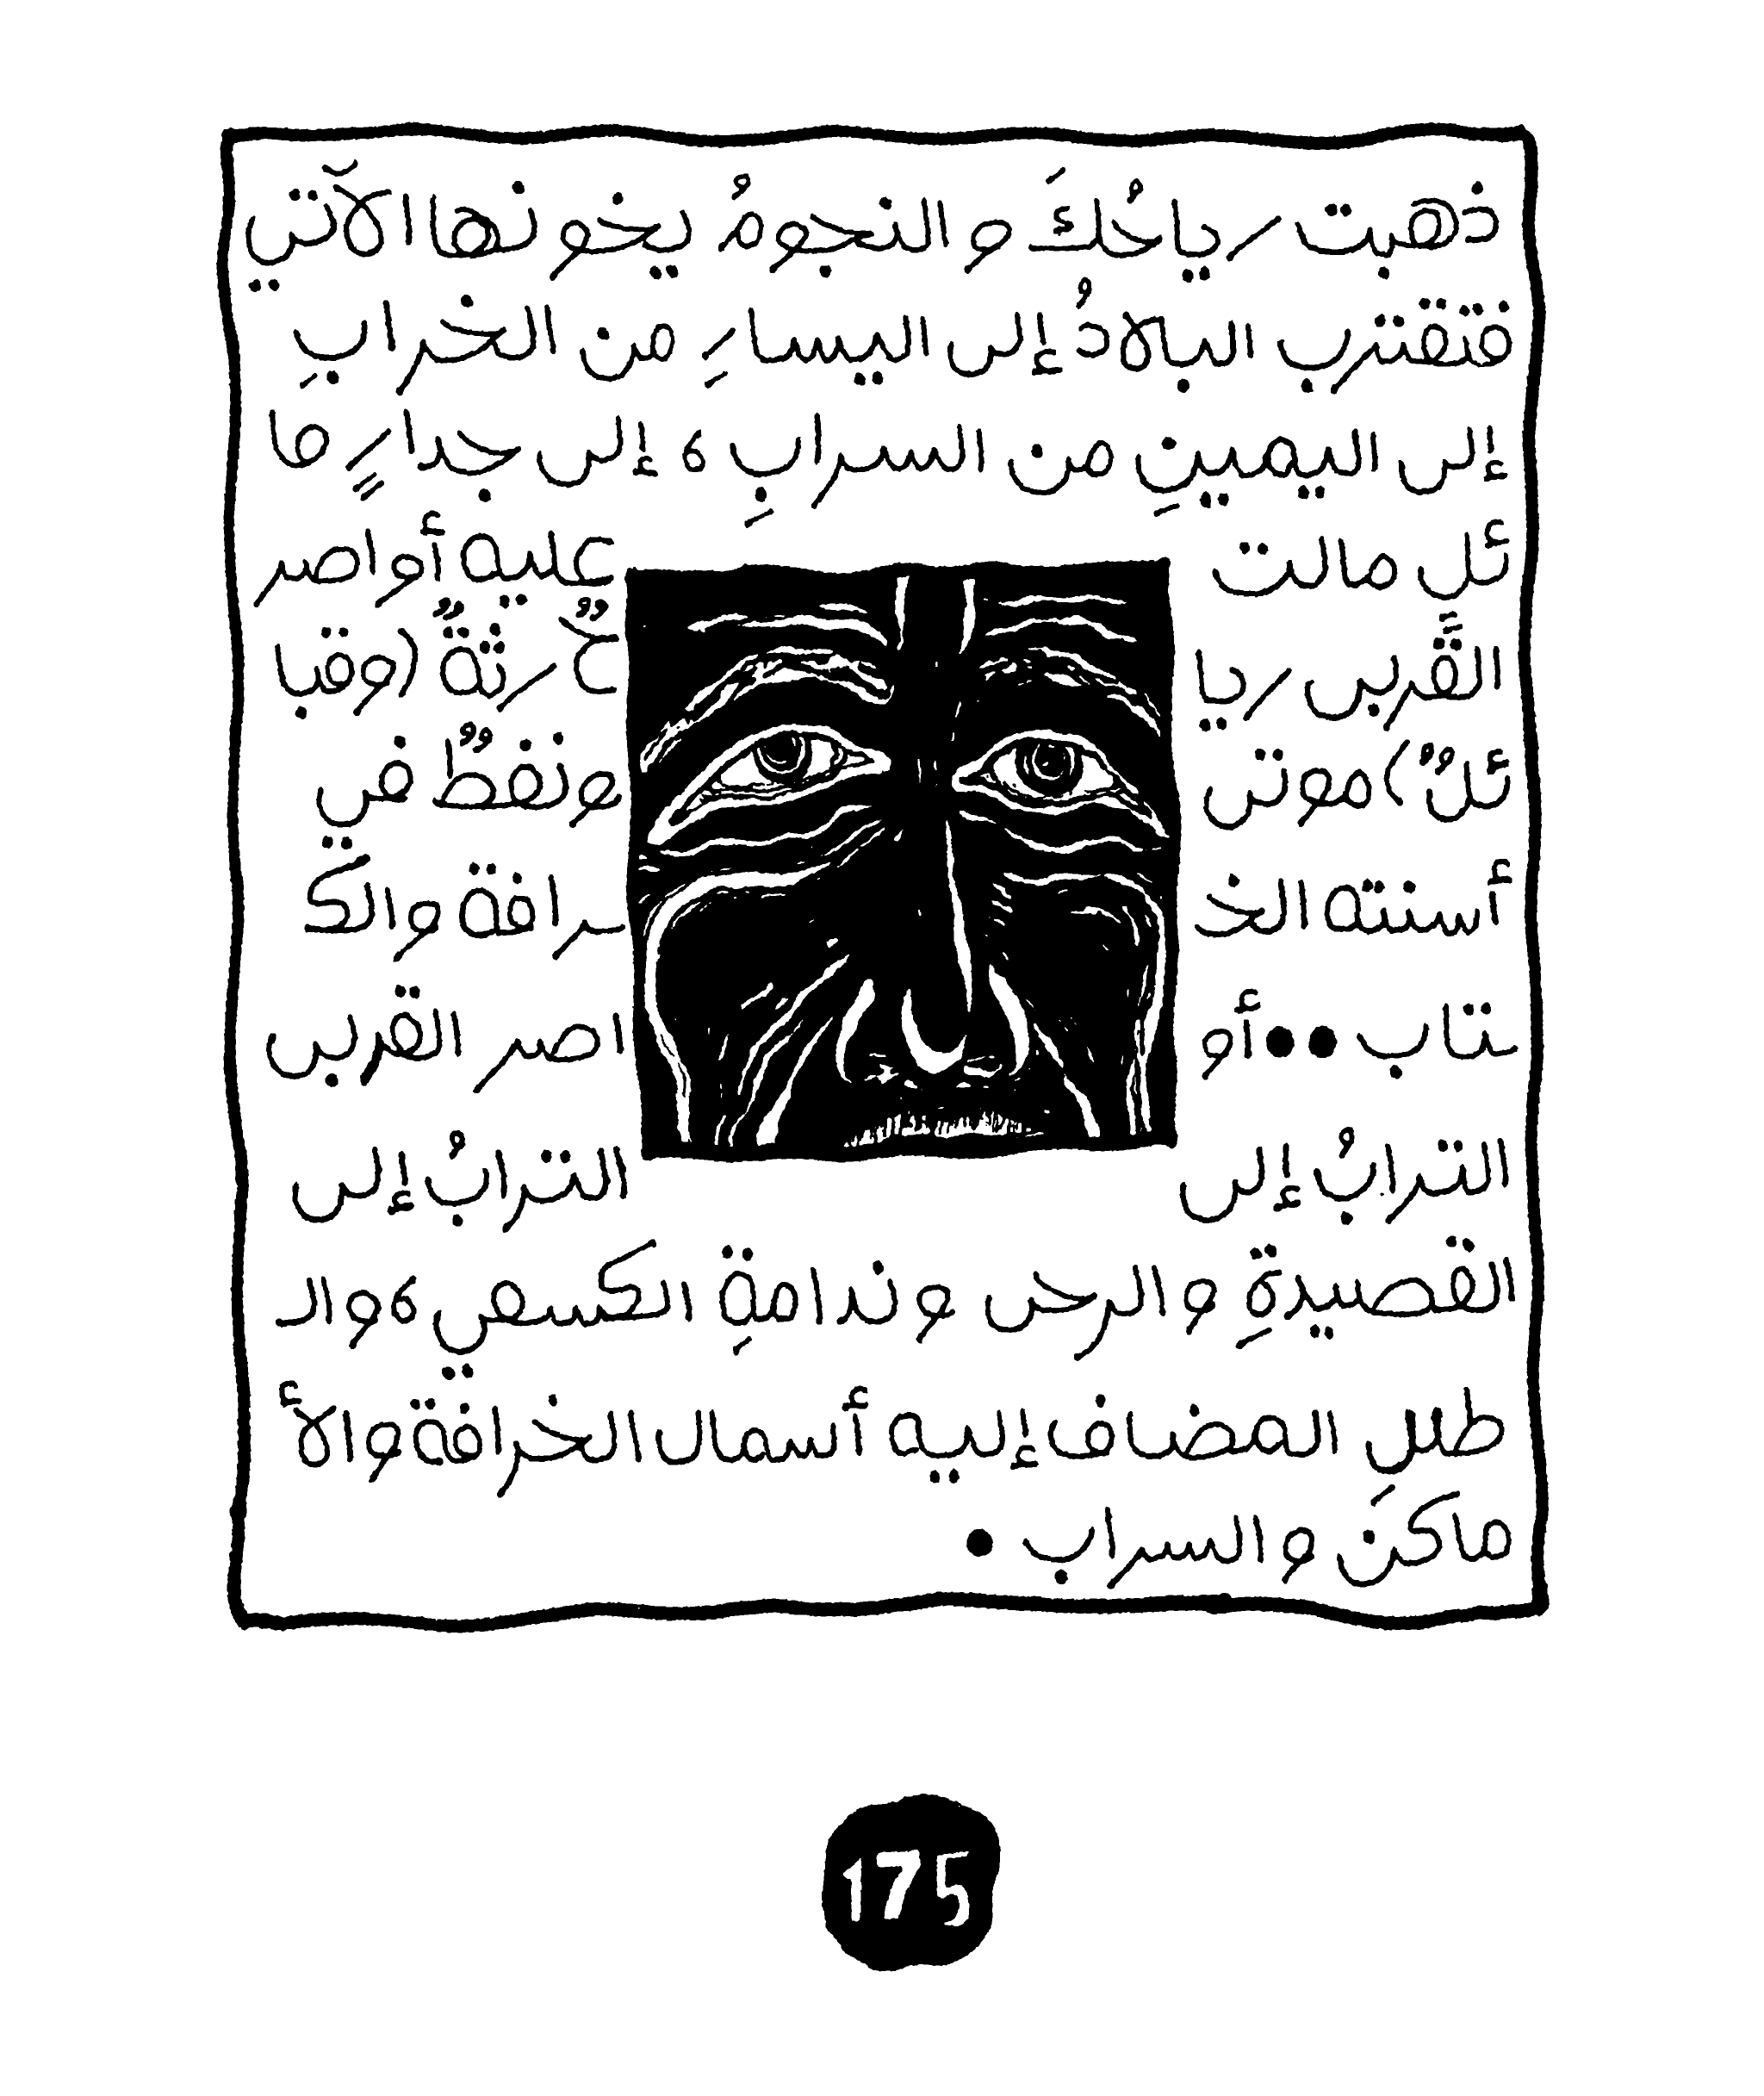 ذهبت رياحُكَ والنجومُ يخونها الآتي
فتقترب البلادُ إلى اليسارِ من الخرابِ
إلى اليمينِ من السرابِ، إلى جدارٍ ما
ئل مالت عليه أواصر
القُربى رياحٌ رثةٌ (وقبا
ئلٌ) موتى ونفطٌ في
أسنته الخرافة والكـ
ـتاب.. أواصر القربى
الترابُ إلى الترابُ إلى
القصيدةِ والرحى وندامةِ الكسعي، والـ
طللِ المضاف إليه أسمال الخرافة والأ
ماكنَ والسراب.
175